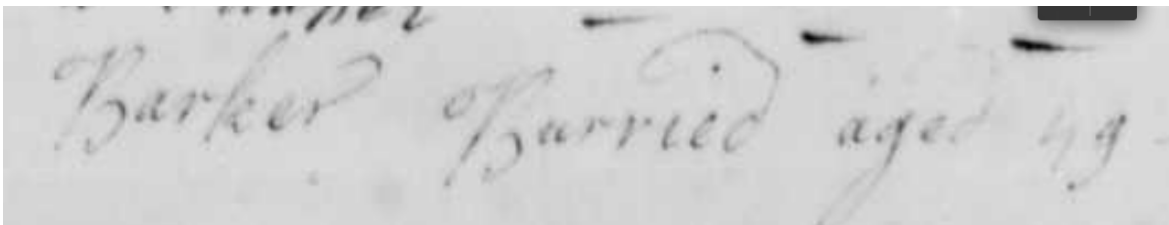 Barker Burried aged 49